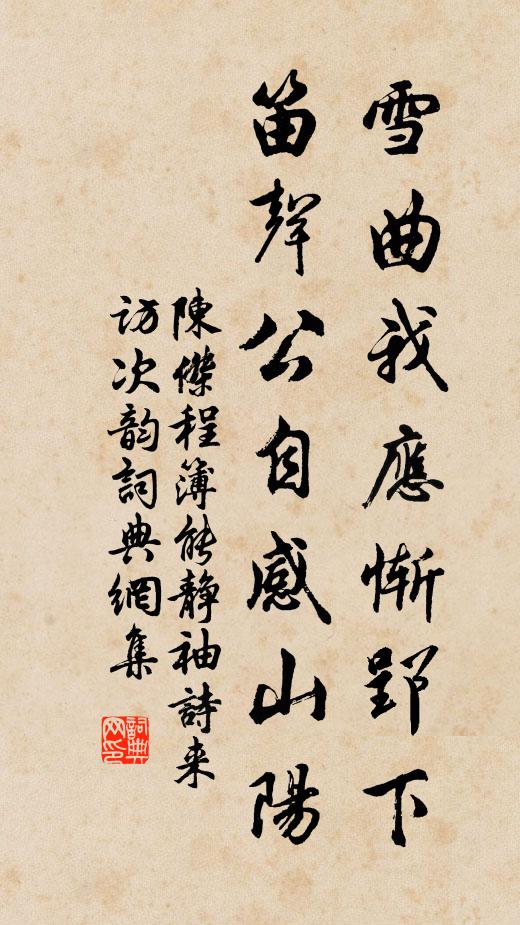 雪曲我應慚郢下
笛聲公自感山陽
陳傑程簿能靜袖詩来
訪次韵詞典網集
詞典網印